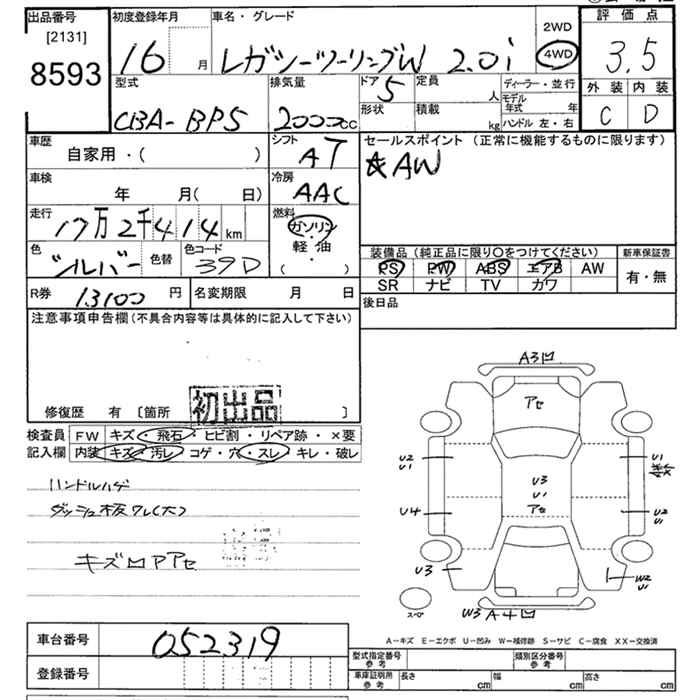 出品番号
[2131]
8593
初度登録年月
16 月
車名・グレード
レガシーツーリングW 2.0i
2WD
4WD
評価点
3.5
外装 内装
C D
型式
CBA-BP5
排気量
2000cc
ドア 5
形状
定員 人
積載 kg
ディーラー・並行
モデル年式 年
ハンドル 左・右
車歴
自家用・( )
シフト
AT
セールスポイント (正常に機能するものに限ります)
AW
車検
年 月( 日)
冷房
AAC
走行
17万2千414 km
燃料
ガソリン
軽・油
( ・ )
色
シルバー
色替
色コード
39D
装備品 (純正品に限り〇をつけてください)
PS PW ABS エアB AW
SR ナビ TV カワ
新車保証書
有・無
R券 13100 円
名変期限 月 日
後日品
注意事項申告欄(不具合内容等は具体的に記入して下さい)
初出品
修復歴 有 〔箇所 〕
検査員記入欄
FW キズ・飛石・ヒビ割・リペア跡・×要
内装 キズ・汚レ・コゲ・穴・スレ・キレ・破レ
ハンドルハゲ
ダッシュ板ワレ(大)
キズ凹アアセ
A3凹
アセ
U2
U1
U1
U3
U1
アセ
U4
U2
U1
U3
W2
U1
スペア
W3 A4凹
A-キズ E-エクボ U-凹み W-補修跡 S-サビ C-腐食 XX-交換済
車台番号
052319
登録番号
型式指定番号
参考
類別区分番号
参考
車庫証明用
参考
長さ cm
幅 cm
高さ cm